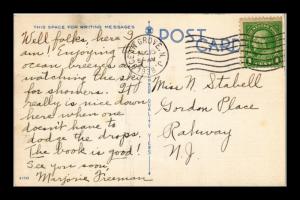 THIS SPACE FOR WRITING MESSAGES
POST CARD
Well folks, here I
am! Enjoying the
ocean breezes and
watching the sky
for showers. It
really is nice down
here when one
doesn't have to
dodge the drops.
The book is good!
See you soon,
Marjorie Freeman
OCEAN GROVE, N.J.
Miss N. Stabell
Gordon Place
Rahway
N.J.